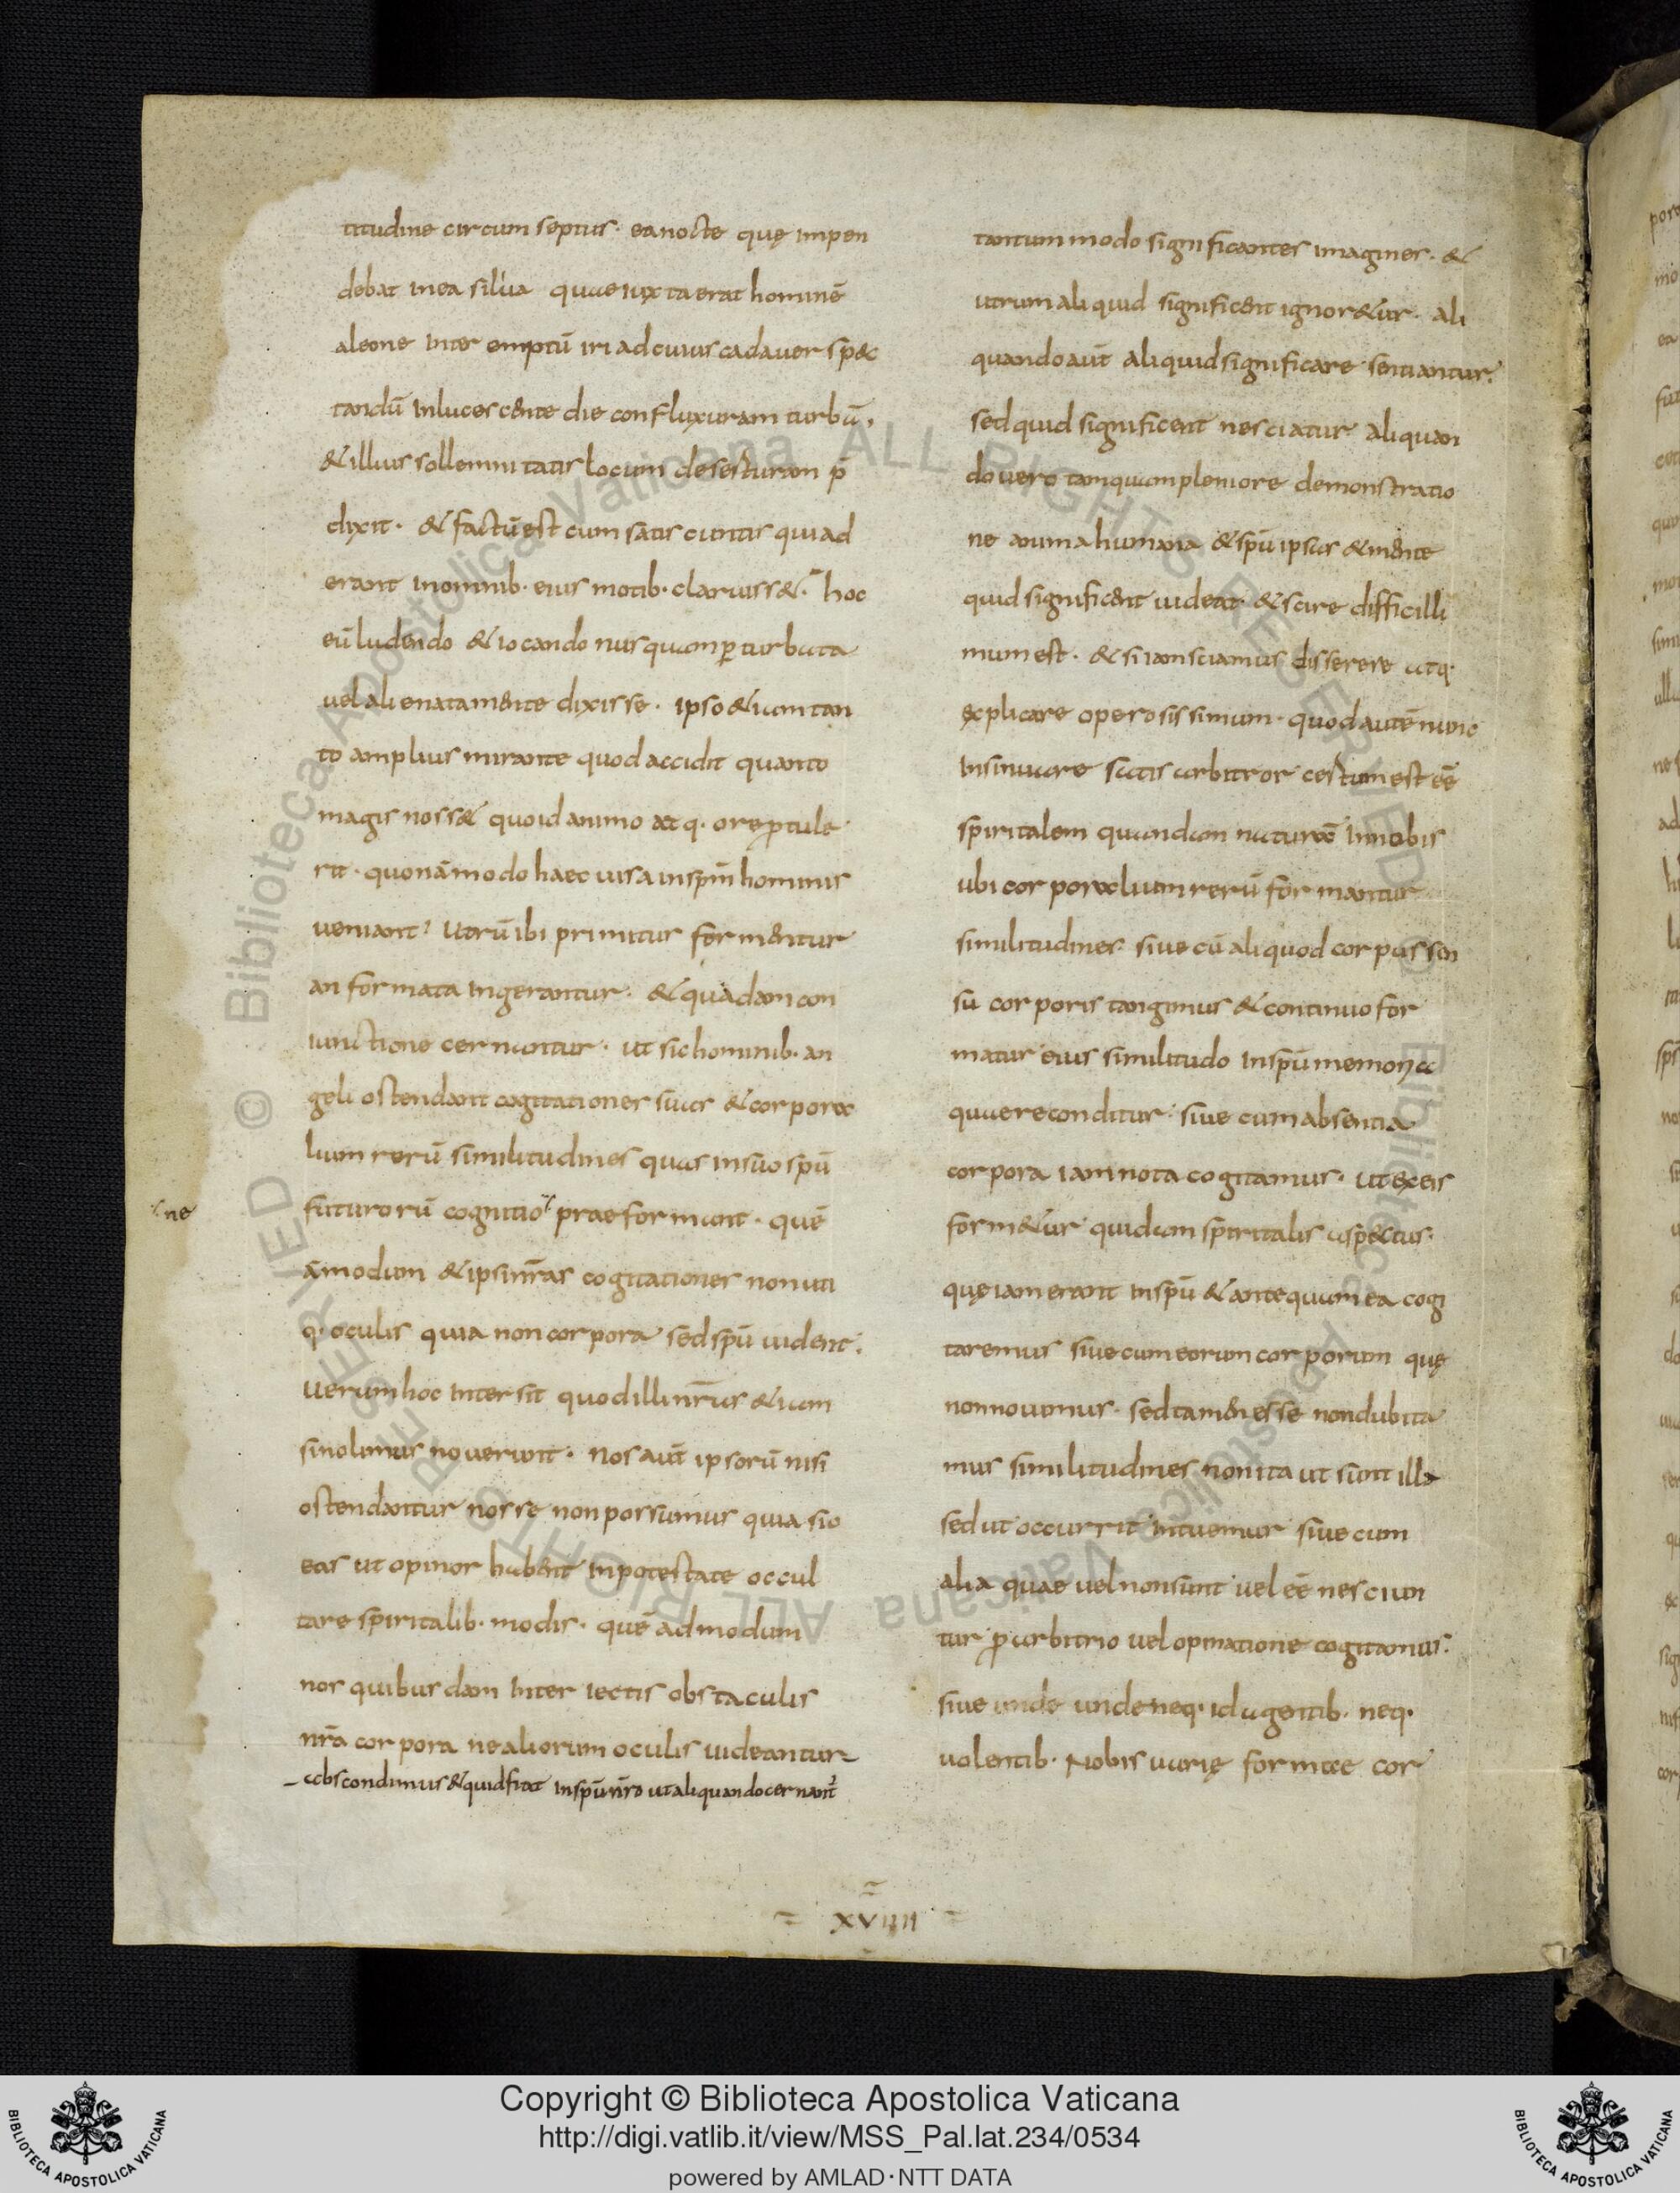 titudine circum septus· ea nocte quę impen
debat in ea silua quae iuxta erat hominē
a leone inter emptū iri ad cuius cadauer spec
tandū inlucescente die confluxuram turbū,
& illius sollemnitatis locum deserturam p̄
dixit· & factū est cum satis cunctis qui ad
erant in omnib· eius motib· claruiss&· hoc
eū ludendo & iocando nusquam ꝑturbata
uel alienata mente dixisse· ipso &iam tan
to amplius mirante quod accidit quanto
magis noss& quo id animo atq· ore ꝓtule
rit· quonā modo haec uisa in spm̄ hominis
ueniant? Utrū ibi primitus formentur
an formata ingerantur· & quadam con
iunctione cernuntur· ut sic hominib· an
geli ostendant cogitationes suas & corpora
lium rerū similitudines quas in suo spū
futurorū cognitio praeformant· quē
ne
āmodum & ipsi nr̄as cogitationes non uti
q· oculis quia non corpora sed spū uident·
Uerum hoc intersit quod illi nr̄as &iam
si nolimus nouerunt· Nos aūt ipsorū nisi
ostendantur nosse non possumus quia sic
eas ut opinor habent in potestate occul
tare spiritalib· modis· quē admodum
nos quibusdam inter iectis obstaculis
nr̄a corpora ne aliorum oculis uideantur
abscondimus & quid fiat in spū nr̄o ut aliquando cernant̄
tantummodo significantes imagines· &
utrum aliquid significent ignor&ur· ali
quando aūt aliquid significare sentiantur·
sed quid significent nesciatur aliquan
do uero tamquam pleniore demonstratio
ne anima humana & spū ipsas & mente
quid significent uideat & scire difficilli
mum est· & si iam sciamus disserere atq·
explicare operosissimum· quod autē nunc
insinuare satis arbitror certum est ēē
spiritalem quandam naturā in nobis
ubi corporalium rerū formantur
similitudines· siue cū aliquod corpus sen
su corporis tangimus & continuo for
matur eius similitudo in spū memoria
quae reconditur· siue cum absentia
corpora iam nota cogitamus· ut ex eis
form&ur quidam spiritalis aspectus·
quę iam erant in spū & antequam ea cogi
taremus siue cum eorum corporum quę
non nouimus· sed tamen esse non dubita
mus similitudines non ita ut sunt illa
sed ut occurrit intuemur siue cum
alia quae uel non sunt uel ēē nesciun
tur ꝓ arbitrio uel opinatione cogitamus·
siue unde unde neq· id agentib· neq·
uolentib· Nobis uarię formae cor
XVIIII
Copyright © Biblioteca Apostolica Vaticana
http://digi.vatlib.it/view/MSS_Pal.lat.234/0534
powered by AMLAD·NTT DATA
BIBLIOTECA APOSTOLICA VATICANA
BIBLIOTECA APOSTOLICA VATICANA
© Biblioteca Apostolica Vaticana ALL RIGHTS RESERVED
© Biblioteca Apostolica Vaticana ALL RIGHTS RESERVED